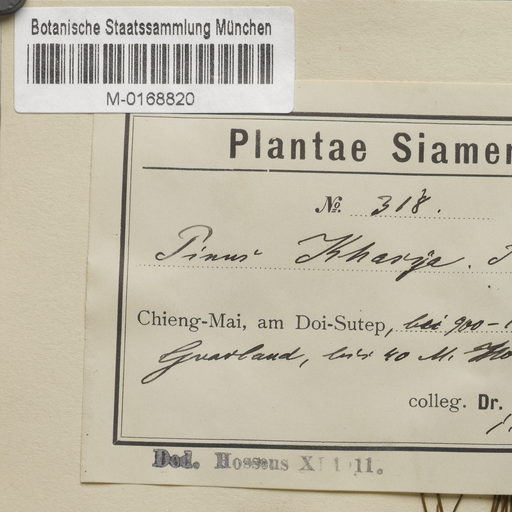 Botanische Staatssammlung München
M-0168820
Plantae Siamen
No. 318.
Pinus Khasya.
Chieng-Mai, am Doi-Sutep, bei 900-1
Grasland, bis 40 M.
colleg. Dr.
Ded. Hosseus